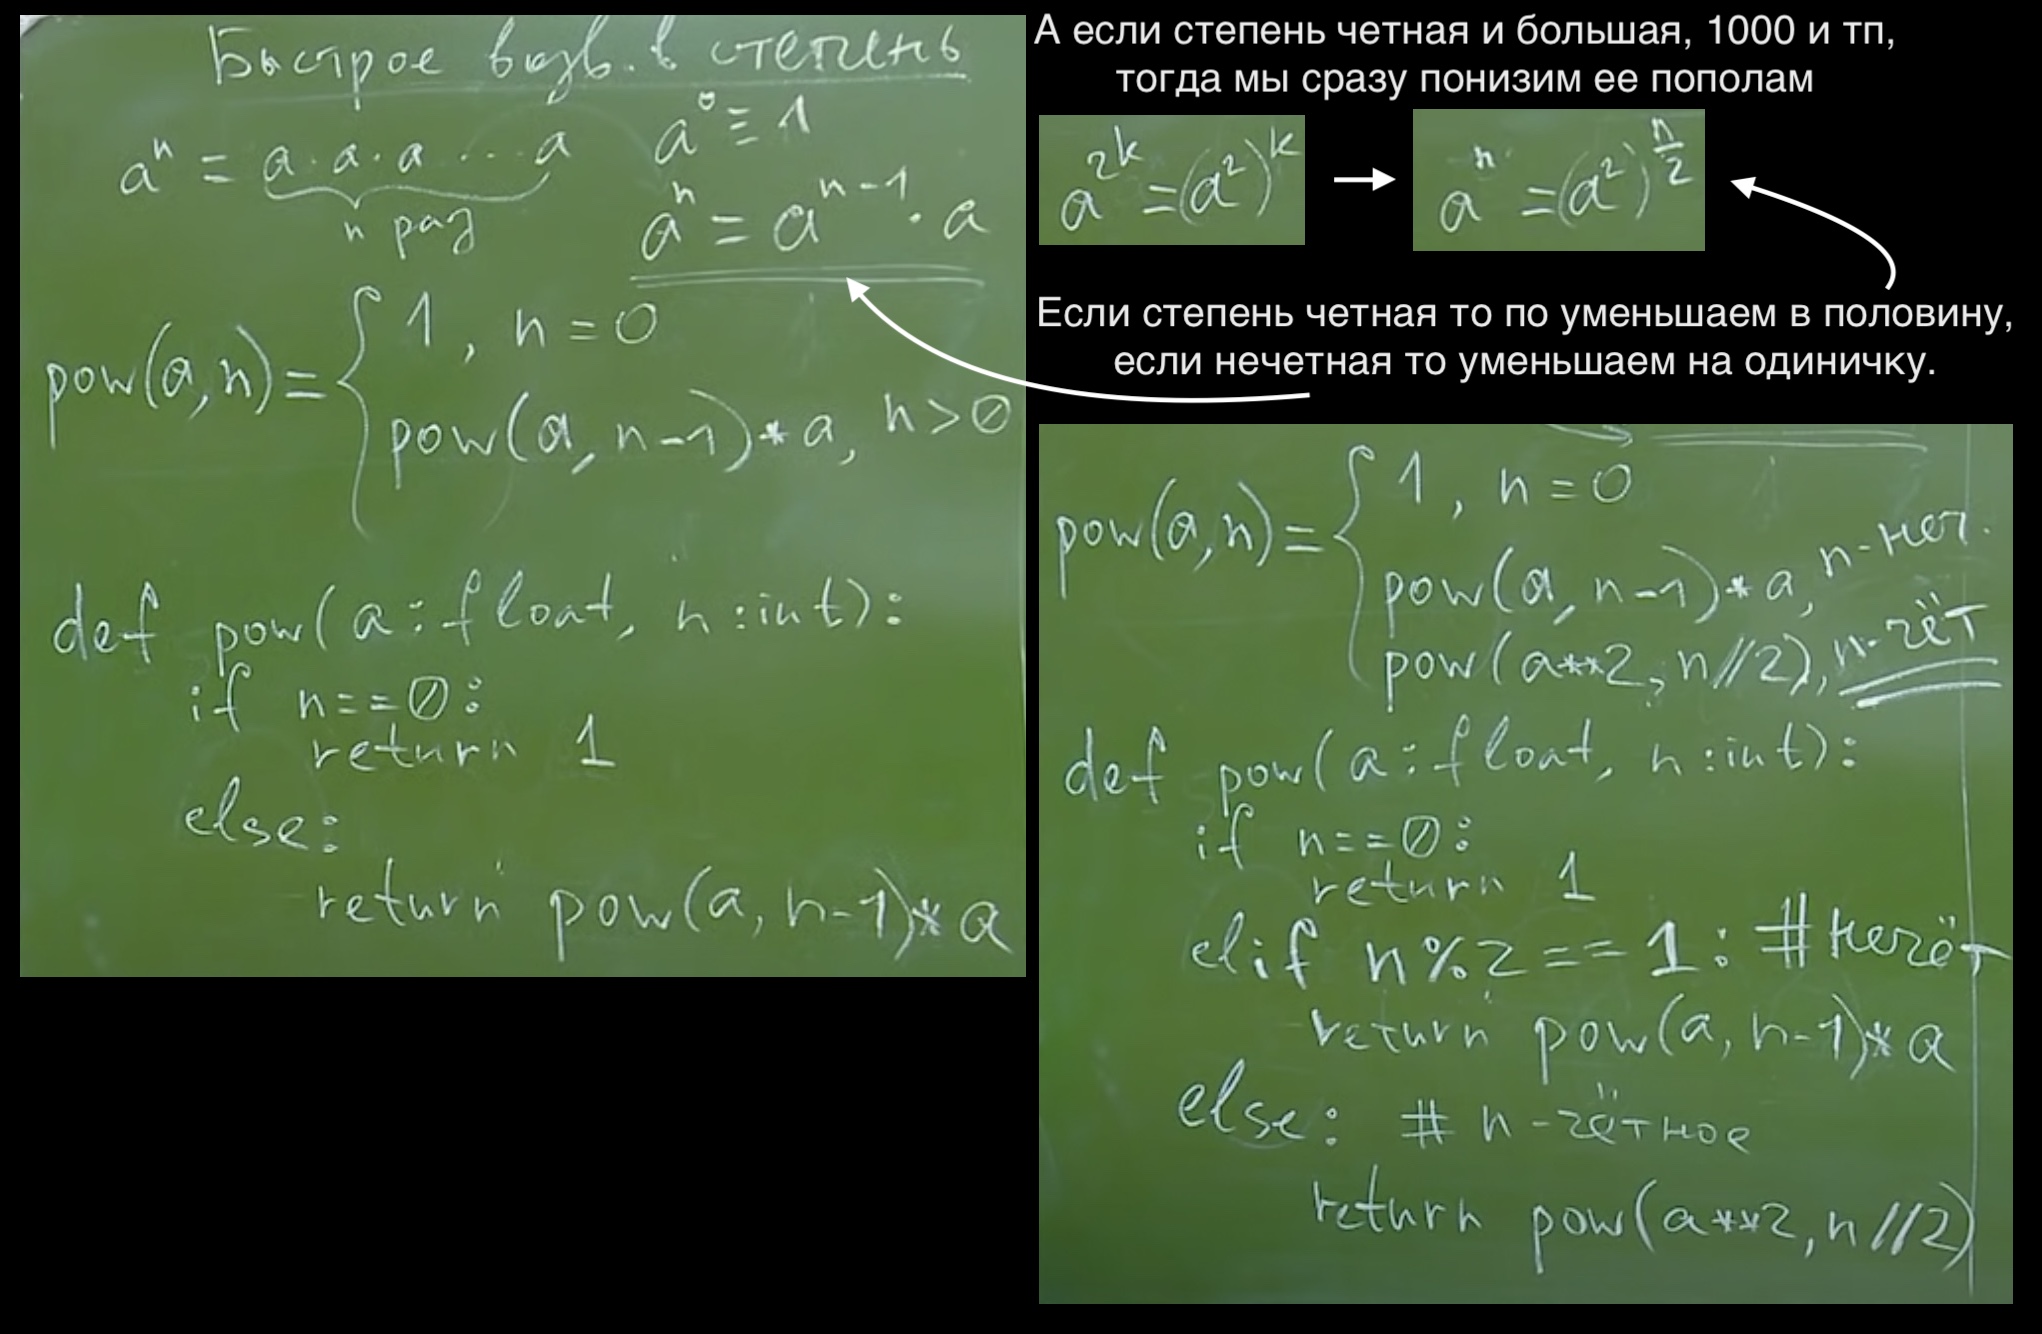 Быстрое возв. в степень
aⁿ = a · a · a ... a
n раз
a⁰ ≡ 1
aⁿ = aⁿ⁻¹ · a
pow(a,n) = { 1, n = 0
pow(a, n-1)*a, n>0
def pow(a:float, n:int):
if n==0:
return 1
else:
return pow(a, n-1)*a
А если степень четная и большая, 1000 и тп,
тогда мы сразу понизим ее пополам
a²ᵏ = (a²)ᵏ → aⁿ = (a²)^(n/2)
Если степень четная то по уменьшаем в половину,
если нечетная то уменьшаем на одиничку.
pow(a,n) = { 1, n = 0
pow(a, n-1)*a, n-неч.
pow(a**2, n//2), n-чёт
def pow(a:float, n:int):
if n==0:
return 1
elif n%2==1: #нечёт
return pow(a, n-1)*a
else: # n-чётное
return pow(a**2, n//2)